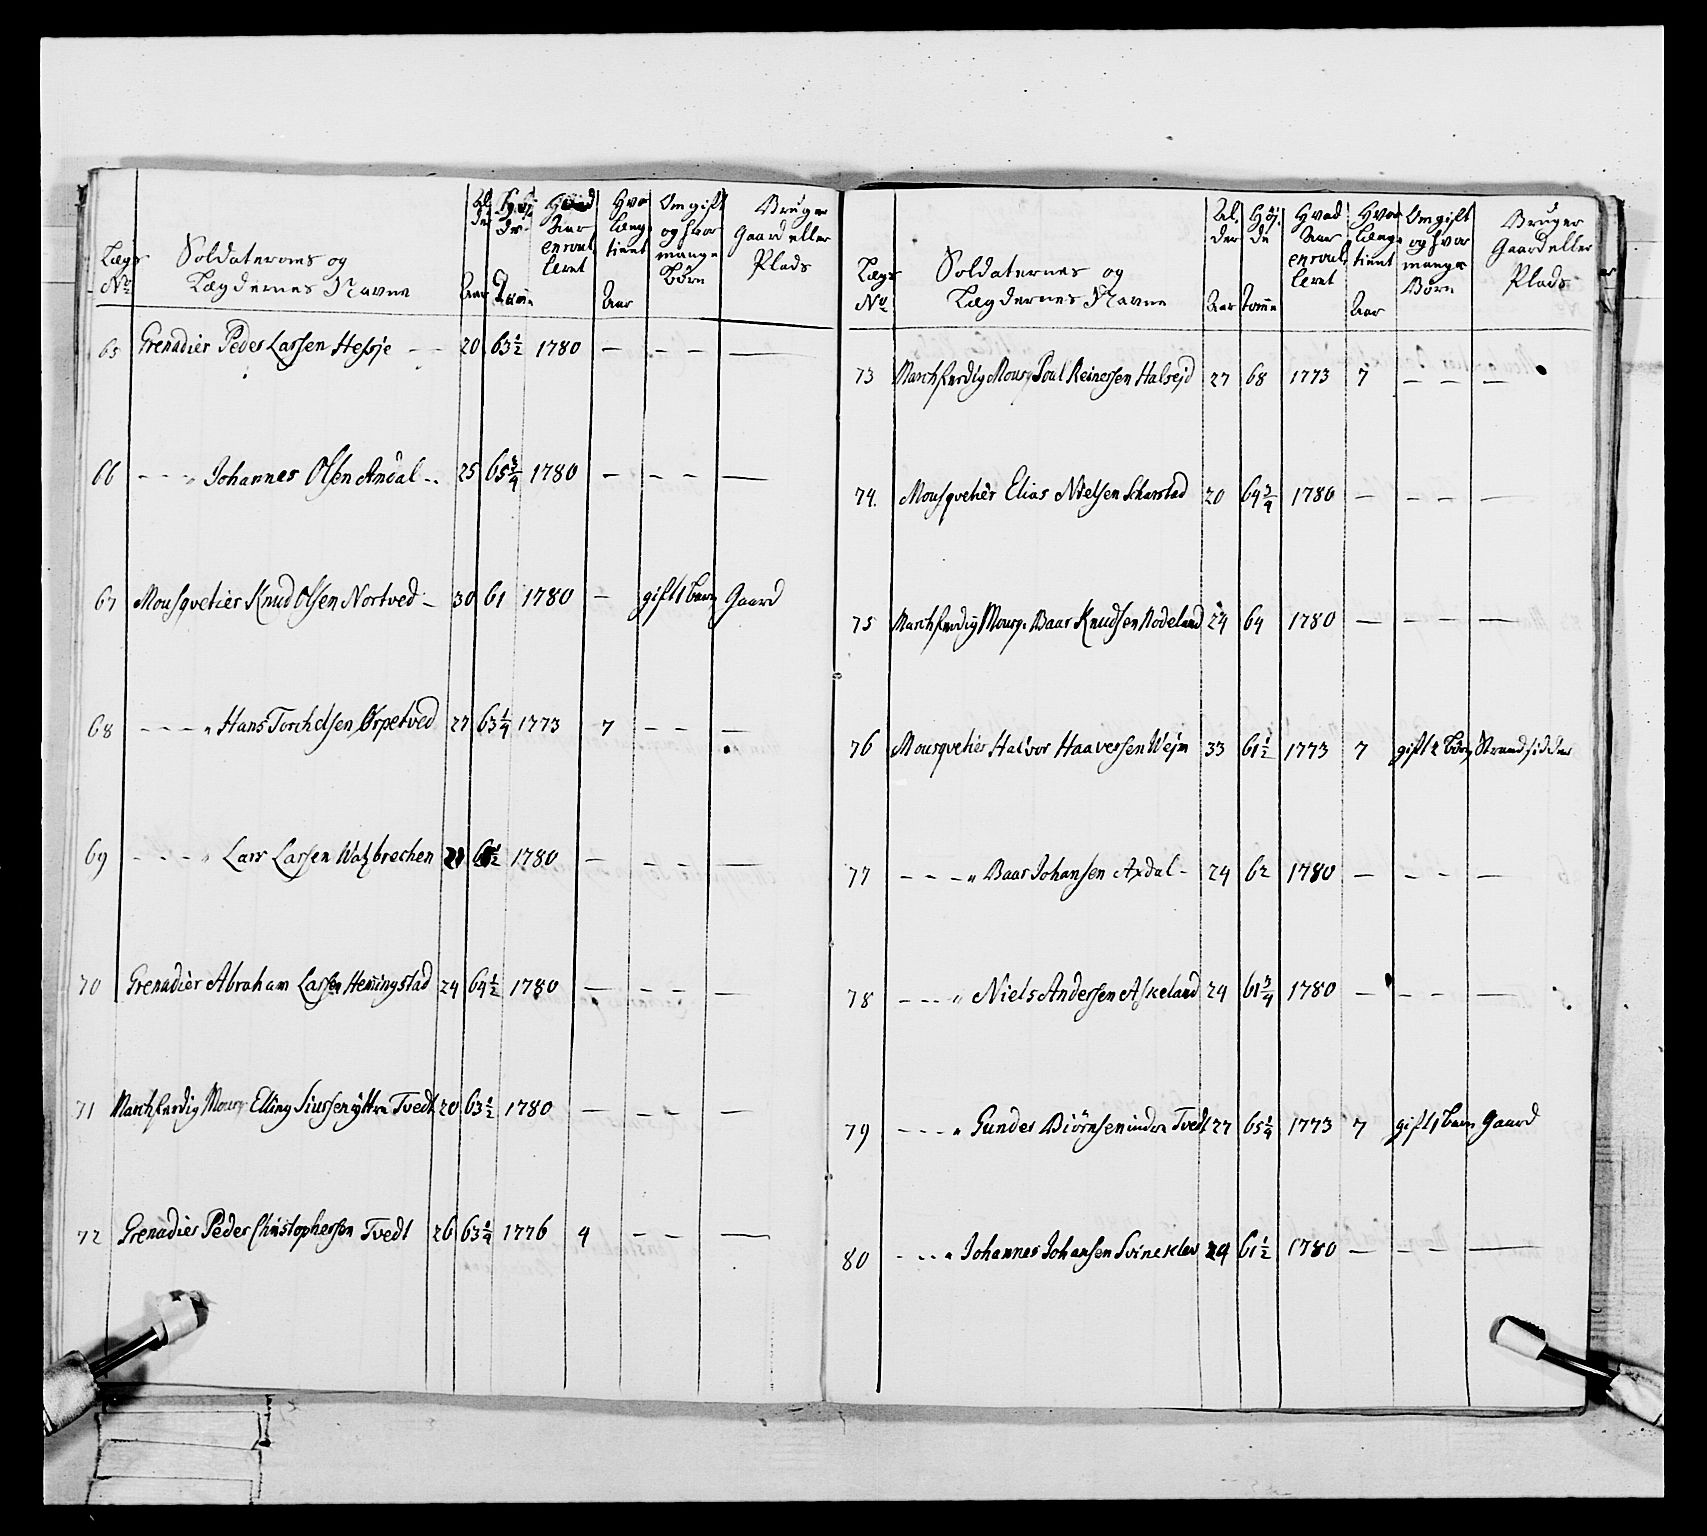 Lægs No
Soldaternes og Lægdernes Navne
Alder Aar
Høide Tomme
Hvad Aar enroulleret
Hvor længe tient Aar
Om gift og hvor mange Børn
Bruger Gaard eller Plads
65 Grenadier Peder Larsen Hessje — — 20 63½ 1780 — — — —
66 — — — " Johannes Olsen Andal — 25 65¾ 1780 — — — —
67 Mousqvetier Knud Olsen Nortved — 30 61 1780 — gift 1 barn Gaard
68 — — — " Hans Torchelsen Ørpetved 27 63¼ 1773 7 — — —
69 — — — " Lars Larsen 1780 — — — —
70 Grenadier Abraham Larsen Hemingstad 24 64½ 1780 — — — —
71 Marchferdig Mousq. Elling Siursen yttre Tvedt 20 63½ 1780 — — —
72 Grenadier Peder Christophersen Tvedt 26 63¼ 1776 4 — — —
Lægs No
Soldaternes og Lægdernes Navne
Alder Aar
Høide Tomme
Hvad Aar enroulleret
Hvor længe tient Aar
Om gift og hvor mange Børn
Bruger Gaard eller Plads
73 Marchferdig Mousq. Poul Reinersen Halsejd 27 68 1773 7 — — —
74. Mousqvetier Elias Nielsen Scharstad 20 64¾ 1780 — — — —
75 Marchferdig Mousq. Baar Knudsen Rodeland 24 64 1780 — — — —
76 Mousqvetier Halvor Haaversen Wejn 33 61½ 1773 7 gift 2 børn Strandsidder
77 — — — " Baar Johansen Axdal — 24 62 1780 — — — —
78 — — — " Niels Andersen Askeland 24 61¾ 1780 — — — —
79 — — — " Gunder Biørnsen indre Tvedt 27 65¼ 1773 7 gift 1 barn Gaard
80 — — — " Johannes Johansen Svineklev 24 61½ 1780 — — — —